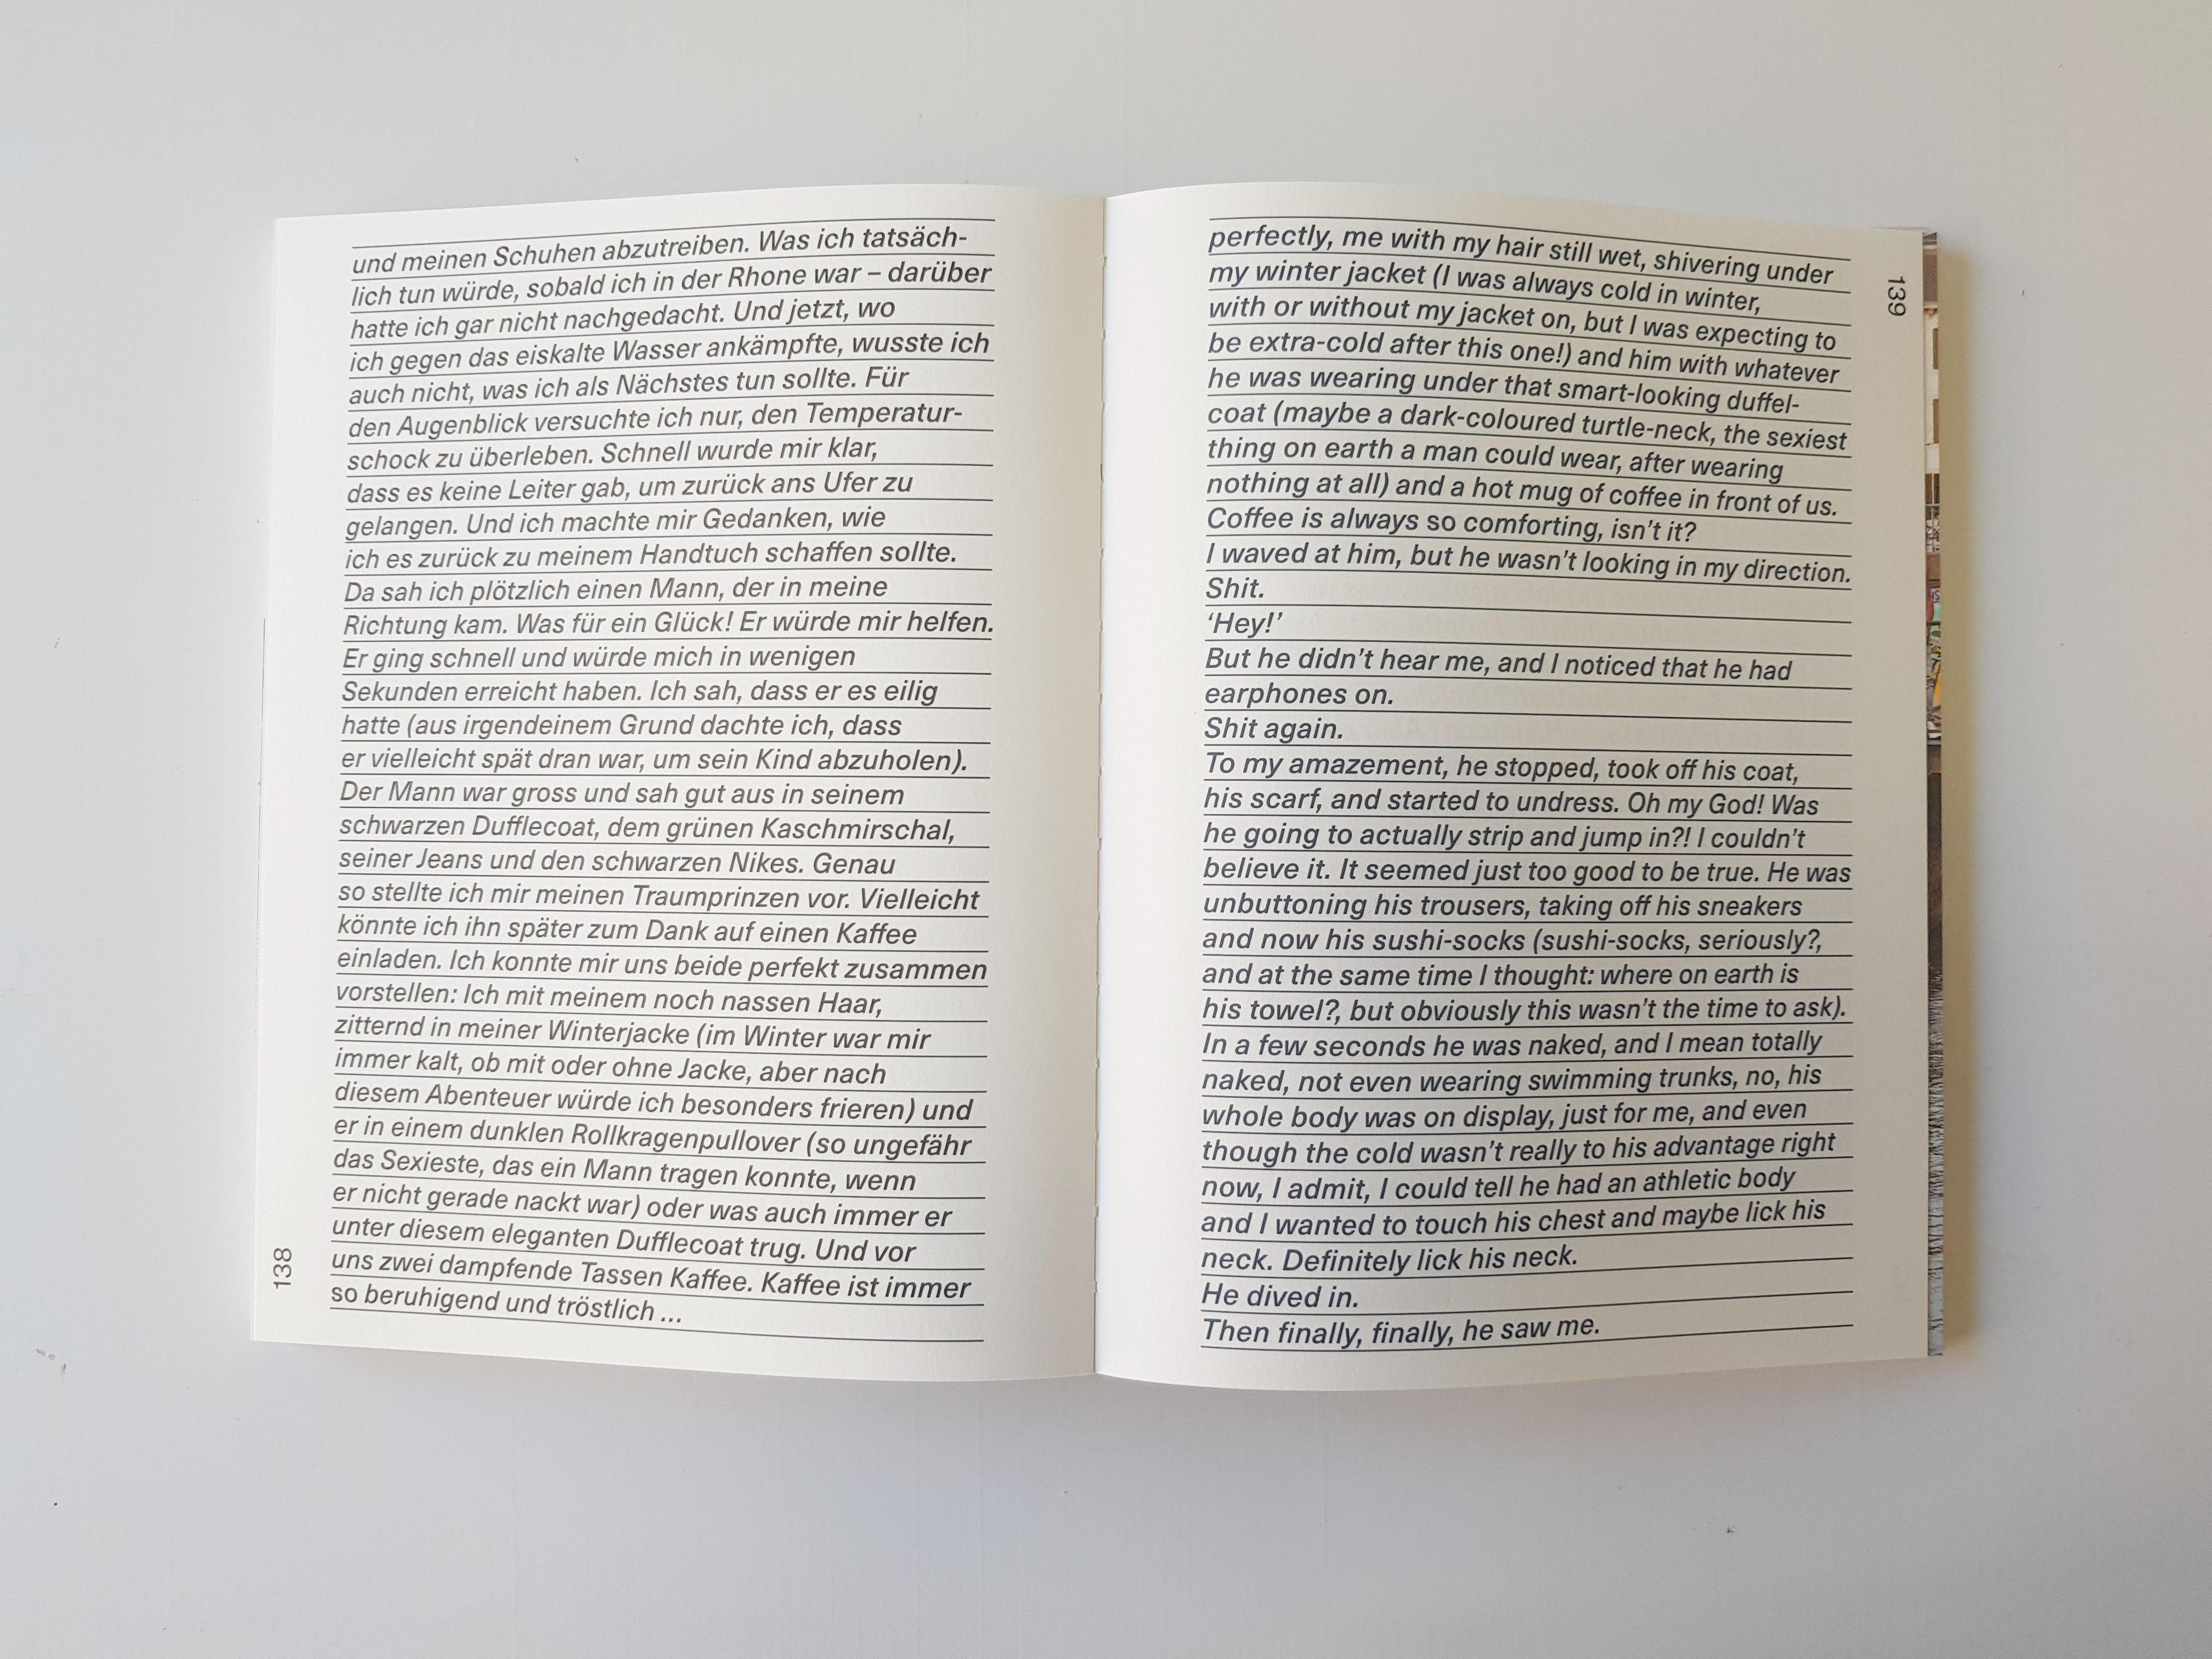 und meinen Schuhen abzutreiben. Was ich tatsäch-
lich tun würde, sobald ich in der Rhone war – darüber
hatte ich gar nicht nachgedacht. Und jetzt, wo
ich gegen das eiskalte Wasser ankämpfte, wusste ich
auch nicht, was ich als Nächstes tun sollte. Für
den Augenblick versuchte ich nur, den Temperatur-
schock zu überleben. Schnell wurde mir klar,
dass es keine Leiter gab, um zurück ans Ufer zu
gelangen. Und ich machte mir Gedanken, wie
ich es zurück zu meinem Handtuch schaffen sollte.
Da sah ich plötzlich einen Mann, der in meine
Richtung kam. Was für ein Glück! Er würde mir helfen.
Er ging schnell und würde mich in wenigen
Sekunden erreicht haben. Ich sah, dass er es eilig
hatte (aus irgendeinem Grund dachte ich, dass
er vielleicht spät dran war, um sein Kind abzuholen).
Der Mann war gross und sah gut aus in seinem
schwarzen Dufflecoat, dem grünen Kaschmirschal,
seiner Jeans und den schwarzen Nikes. Genau
so stellte ich mir meinen Traumprinzen vor. Vielleicht
könnte ich ihn später zum Dank auf einen Kaffee
einladen. Ich konnte mir uns beide perfekt zusammen
vorstellen: Ich mit meinem noch nassen Haar,
zitternd in meiner Winterjacke (im Winter war mir
immer kalt, ob mit oder ohne Jacke, aber nach
diesem Abenteuer würde ich besonders frieren) und
er in einem dunklen Rollkragenpullover (so ungefähr
das Sexieste, das ein Mann tragen konnte, wenn
er nicht gerade nackt war) oder was auch immer er
unter diesem eleganten Dufflecoat trug. Und vor
uns zwei dampfende Tassen Kaffee. Kaffee ist immer
so beruhigend und tröstlich ...
138
perfectly, me with my hair still wet, shivering under
my winter jacket (I was always cold in winter,
with or without my jacket on, but I was expecting to
be extra-cold after this one!) and him with whatever
he was wearing under that smart-looking duffel-
coat (maybe a dark-coloured turtle-neck, the sexiest
thing on earth a man could wear, after wearing
nothing at all) and a hot mug of coffee in front of us.
Coffee is always so comforting, isn't it?
I waved at him, but he wasn't looking in my direction.
Shit.
‘Hey!’
But he didn't hear me, and I noticed that he had
earphones on.
Shit again.
To my amazement, he stopped, took off his coat,
his scarf, and started to undress. Oh my God! Was
he going to actually strip and jump in?! I couldn't
believe it. It seemed just too good to be true. He was
unbuttoning his trousers, taking off his sneakers
and now his sushi-socks (sushi-socks, seriously?,
and at the same time I thought: where on earth is
his towel?, but obviously this wasn't the time to ask).
In a few seconds he was naked, and I mean totally
naked, not even wearing swimming trunks, no, his
whole body was on display, just for me, and even
though the cold wasn't really to his advantage right
now, I admit, I could tell he had an athletic body
and I wanted to touch his chest and maybe lick his
neck. Definitely lick his neck.
He dived in.
Then finally, finally, he saw me.
139